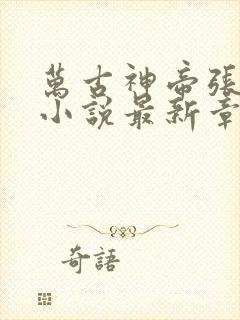 萬古神帝張
小說最新章
奇語